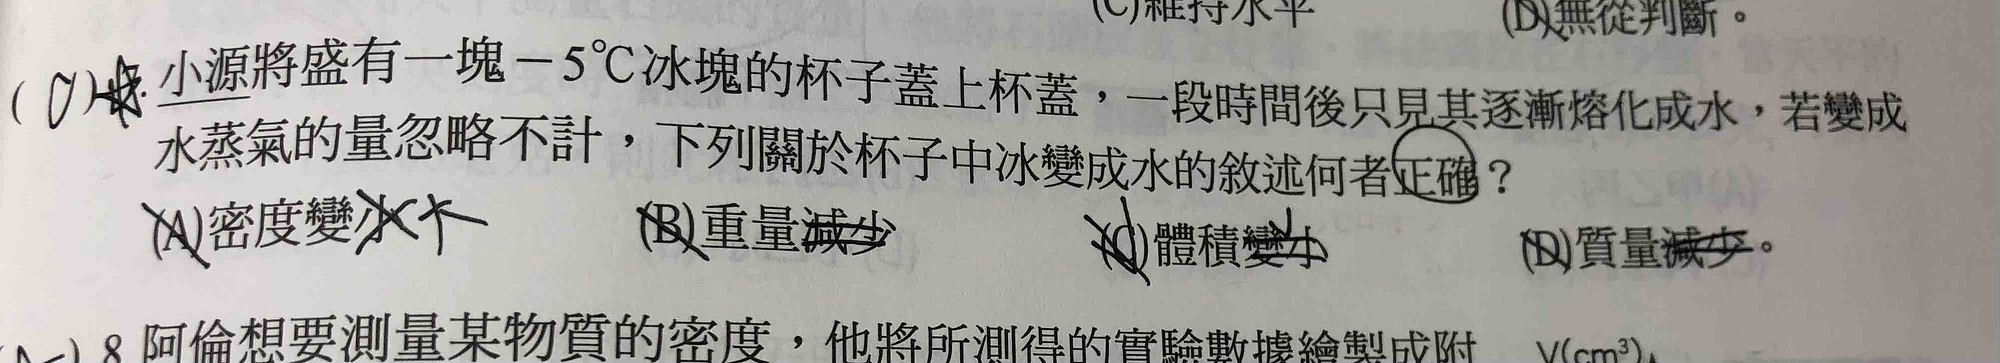 (C)維持水平 (D)無從判斷。
小源將盛有一塊－5℃冰塊的杯子蓋上杯蓋，一段時間後只見其逐漸熔化成水，若變成
水蒸氣的量忽略不計，下列關於杯子中冰變成水的敘述何者正確？
(A)密度變小 (B)重量減少 (C)體積變小 (D)質量減少。
8 阿倫想要測量某物質的密度，他將所測得的實驗數據繪製成附 V(cm³)